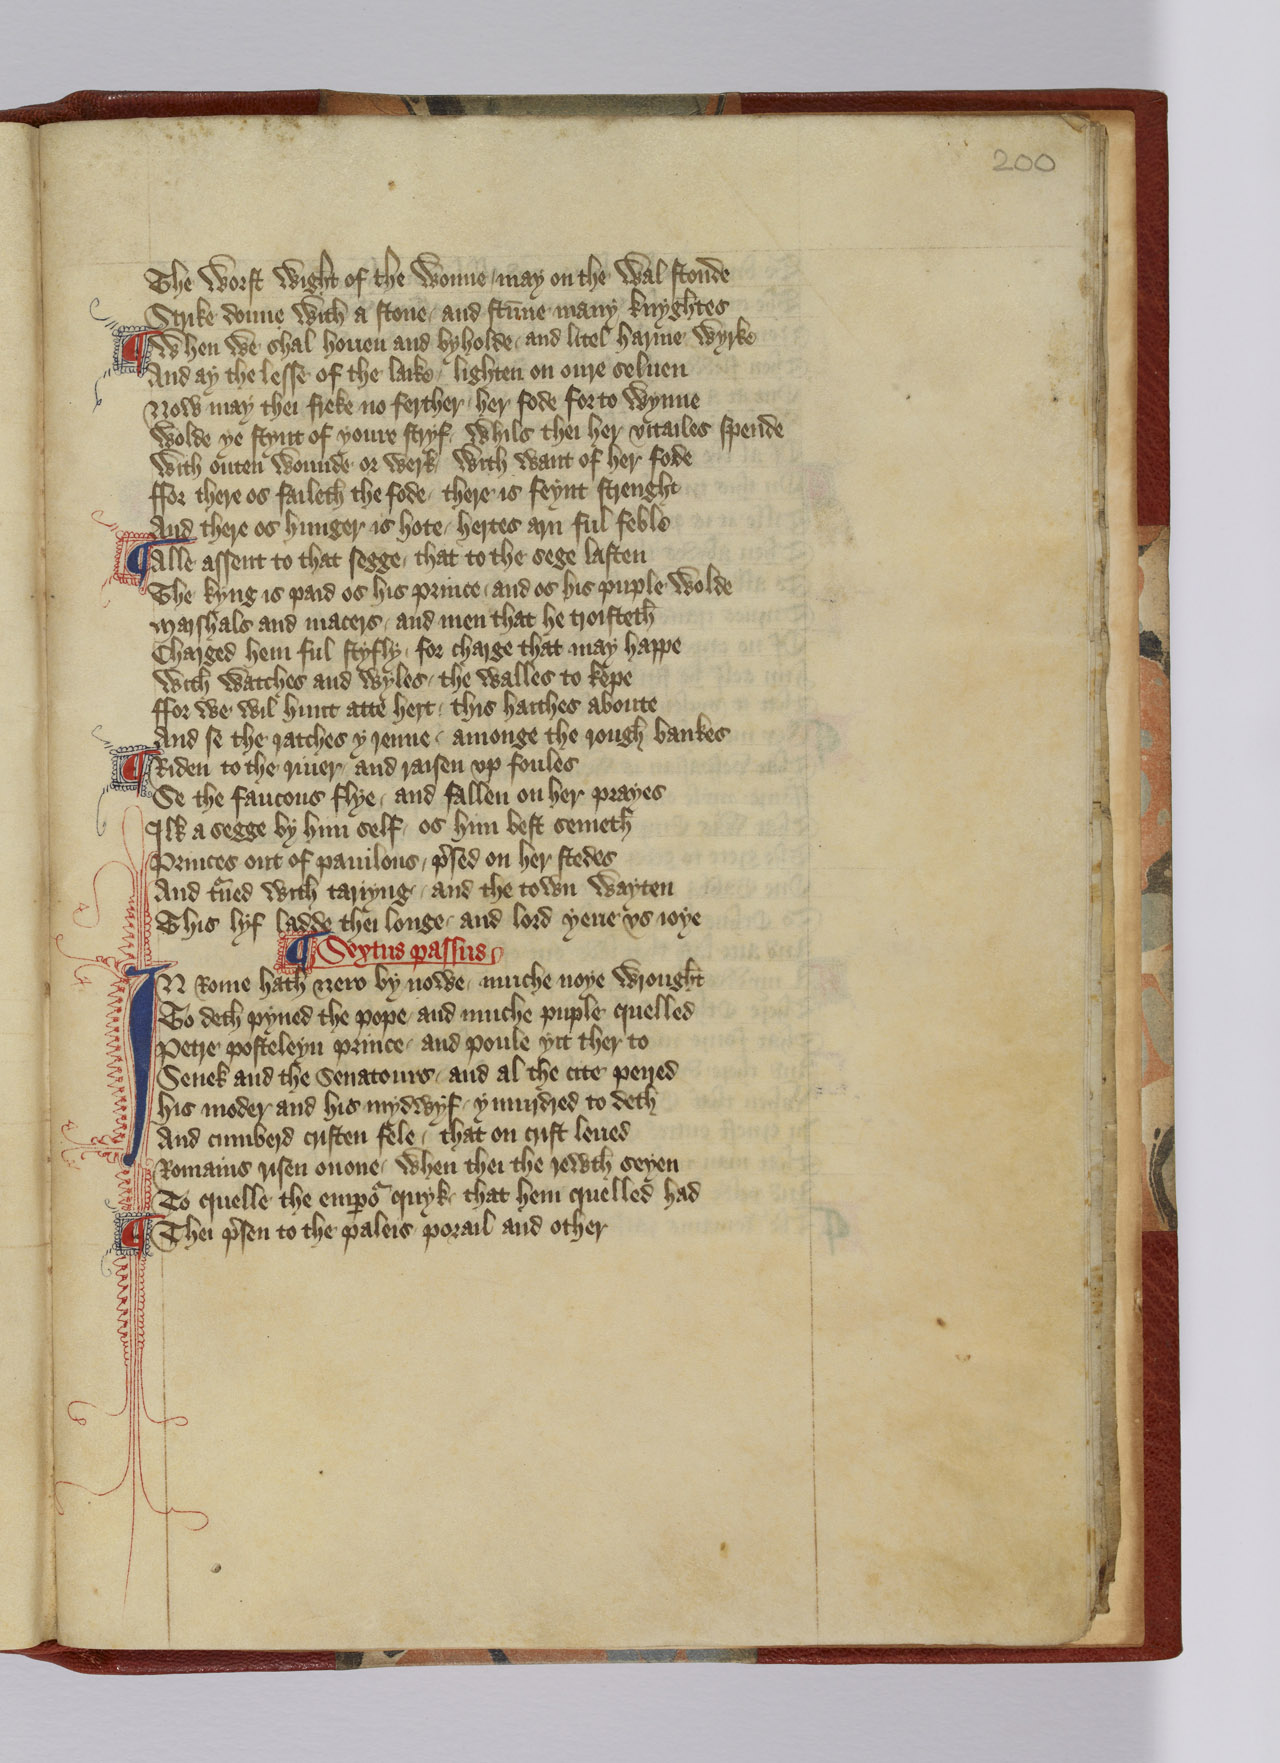 200
The worst wight of the wonne / may on the wal stonde
Strike doune with a stone / and stūne many knyghtes
¶ When we shal houen and byholde / and litel harme wyrke
And ay the lesse of the laike / lighten on oure seluen
Now may thei freke no ferther / her fode for to wynne
Wolde ye stynt of youre stryf / whils thei her vitailes spende
With outen wounde or werk / with want of her fode
ffor there os faileth the fode / there is feynt strenght
And there os hunger is hote / hertes arn ful feble
¶ Alle assent to that segge / that to the sege lasten
The kyng is paid os his prince / and os his puple wolde
Marshals and macers / and men that he troisteth
Charged hem ful styfly / for charge that may happe
With watches and wyles / the walles to kepe
ffor we wil hunt atte hert / this hatches aboute
And se the ratches y renne / amonge the rough bankes
¶ Riden to the riuer / and raisen vp foules
Se the faucons flye / and fallen on her prayes
Ilk a segge by him self / os him best semeth
Princes out of pauilons / p̄sed on her stedes
And t̄ned with tariyng / and the town wayten
This lyf ladde thei longe / and lord yeue vs ioye
¶ Sextus passus
IN Rome hath Nero by nowe / muche noye wrought
To deth pyned the pope / and muche puple quelled
Petre posteleyn prince / and Poule yit ther to
Senek and the Senatours / and al the cite perred
his moder and his mydwyf / y murdred to deth
And cumberd cristen fele / that on crist leued
Romains risen onone / when thei the rewth seyen
To quelle the emꝑoʳ quyk / that hem quelled had
¶ Thei p̄sen to the paleis / porail and other